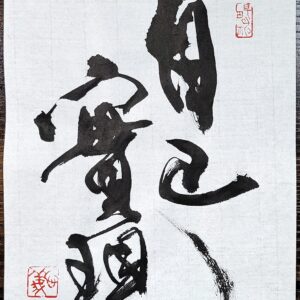 自己
實現